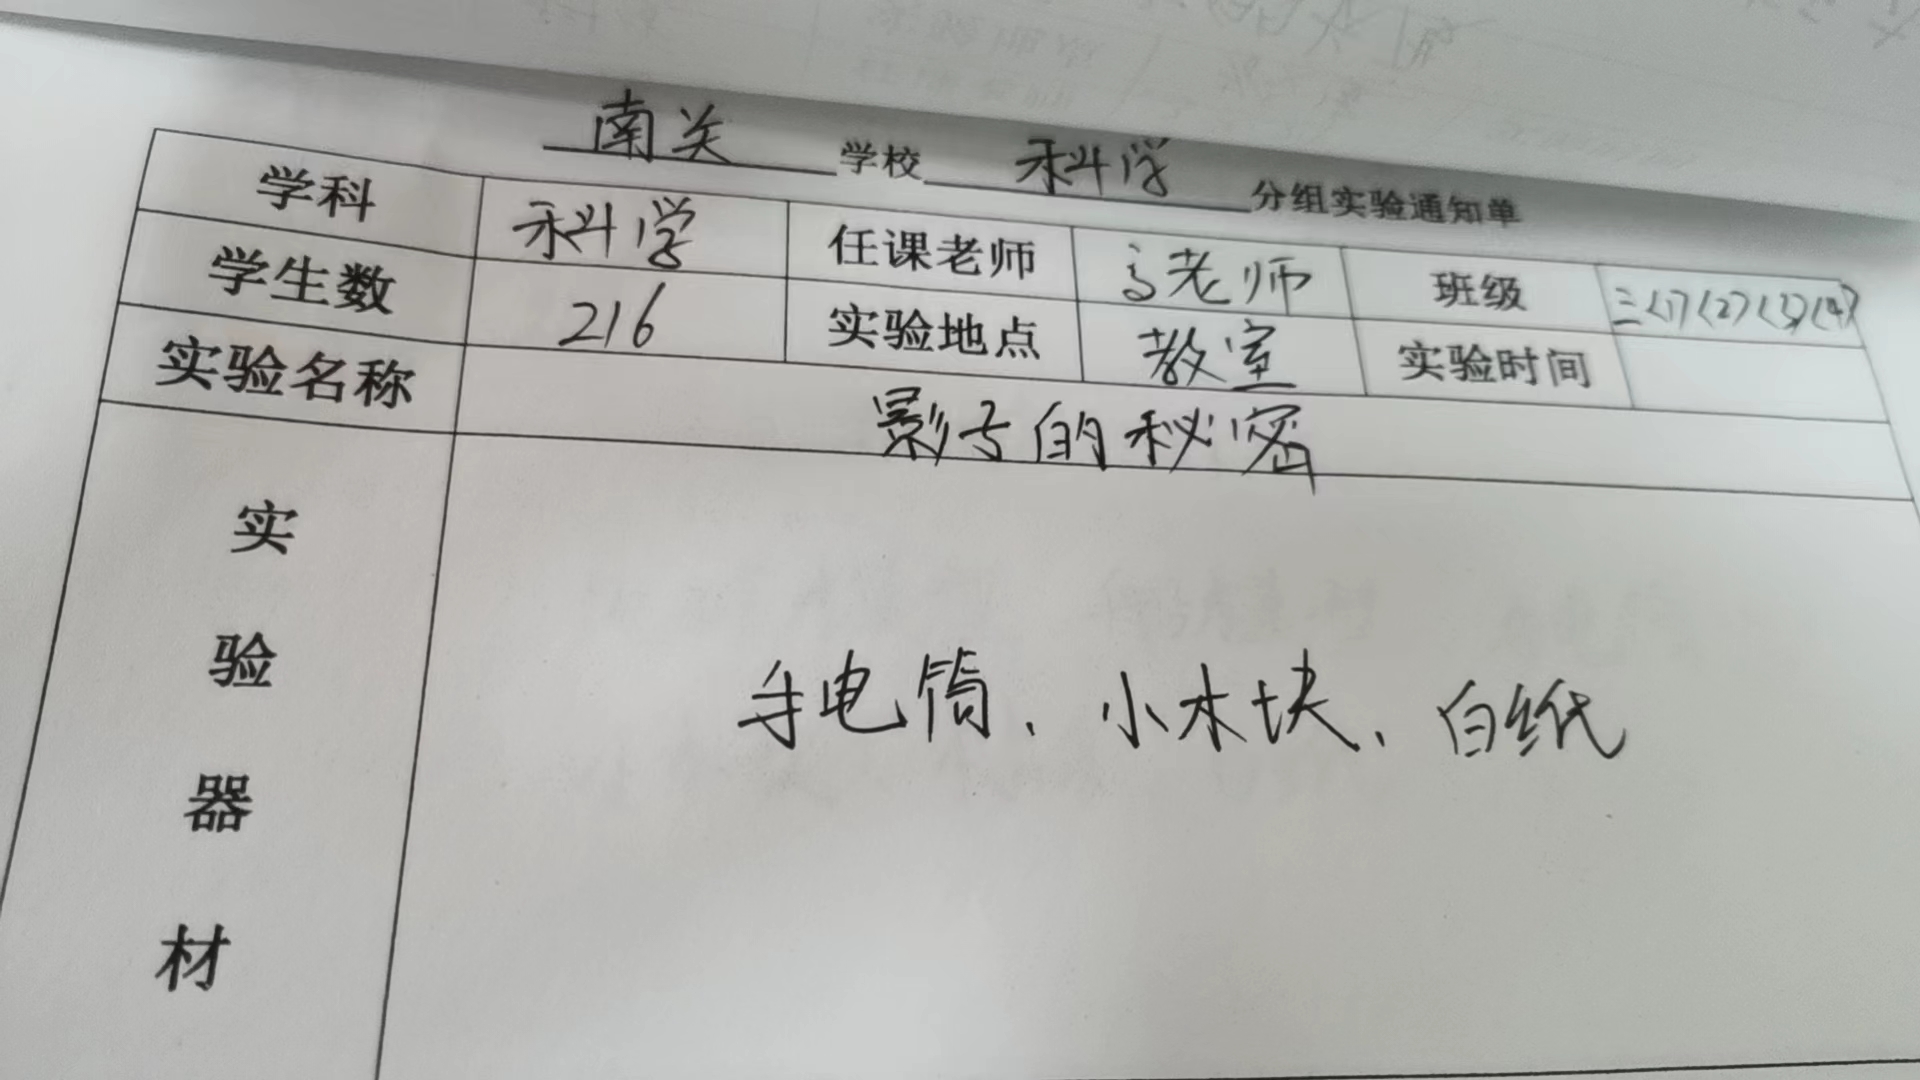 南关 学校 科学 分组实验通知单
学科 科学 任课老师 高老师 班级 三(1)(2)(3)(4)
学生数 216 实验地点 教室 实验时间
实验名称 影子的秘密
实验器材 手电筒、小木块、白纸